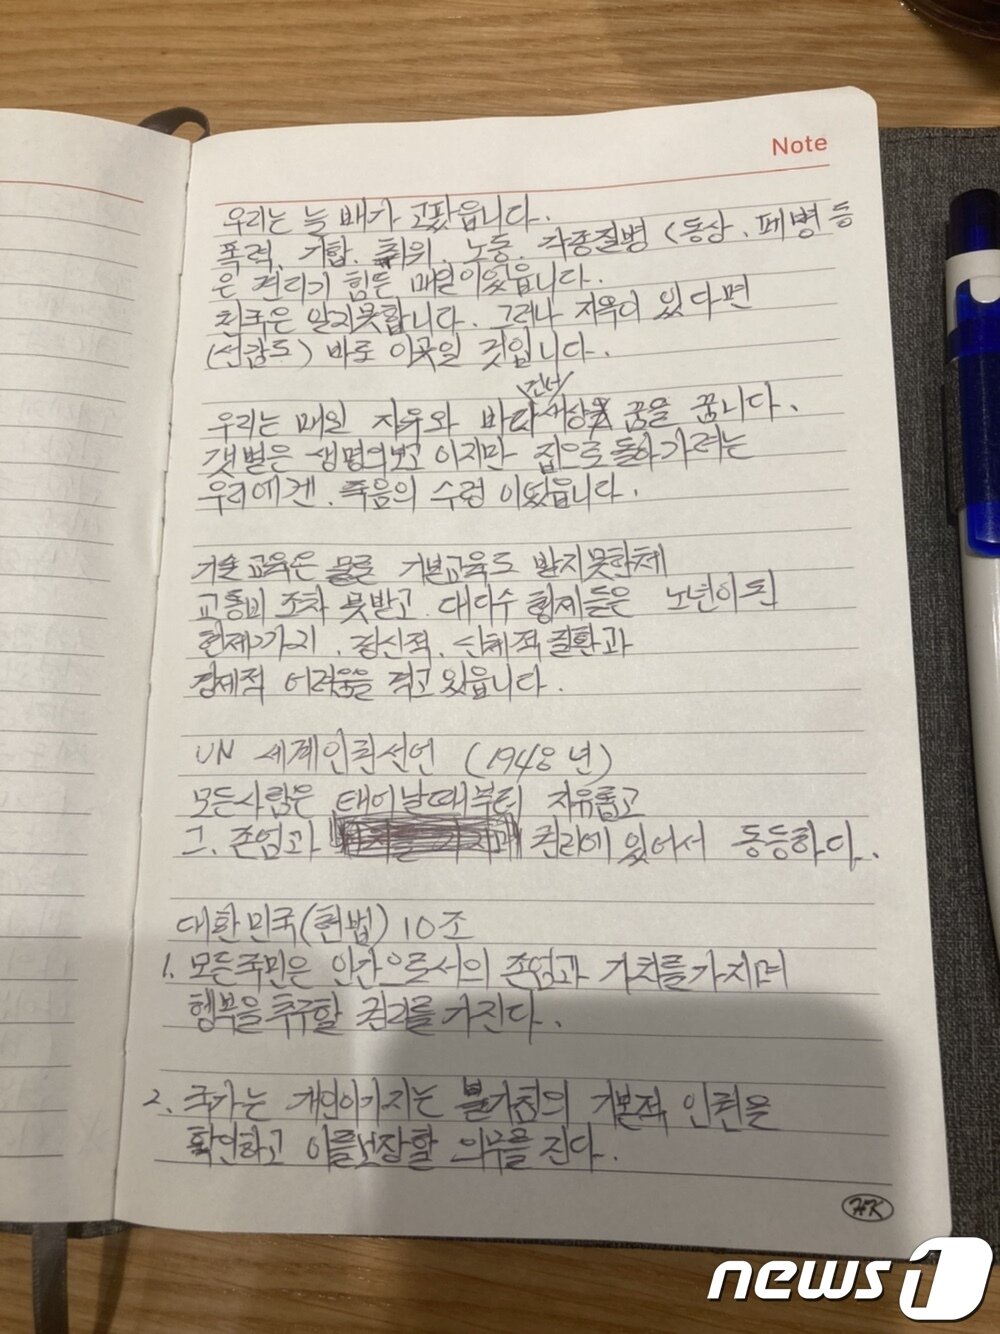 Note
우리는 늘 배가 고팠읍니다.
폭력, 기합, 취위, 노동, 각종질병 (동상, 폐병 등
은 견디기 힘든 매일이었읍니다.
천국은 알지못합니다. 그러나 지옥이 있다면
(선감도) 바로 이곳일 것입니다.
건너
우리는 매일 자유와 바다 세상 꿈을 꿉니다.
갯벌은 생명의보고이지만 집으로 돌아가려는
우리에겐, 죽음의 수렁 이였읍니다.
기술교육은 물론 기본교육도 받지못한체
교통비 조차 못받고 대다수 형제들은 노년이 된
현재까지, 정신적, 신체적질환과
경제적 어려움을 격고있읍니다.
UN 세계인권선언 (1948년)
모든사람은 태어날때부터 자유롭고
그, 존엄과 권리에 있어서 동등하다.
대한민국(헌법) 10조
1. 모든국민은 인간으로서의 존엄과 가치를가지며
행복을추구할 권리를 가진다.
2. 국가는 개인이가지는 불가침의 기본적 인권을
확인하고 이를보장할 의무를 진다.
HK
news1